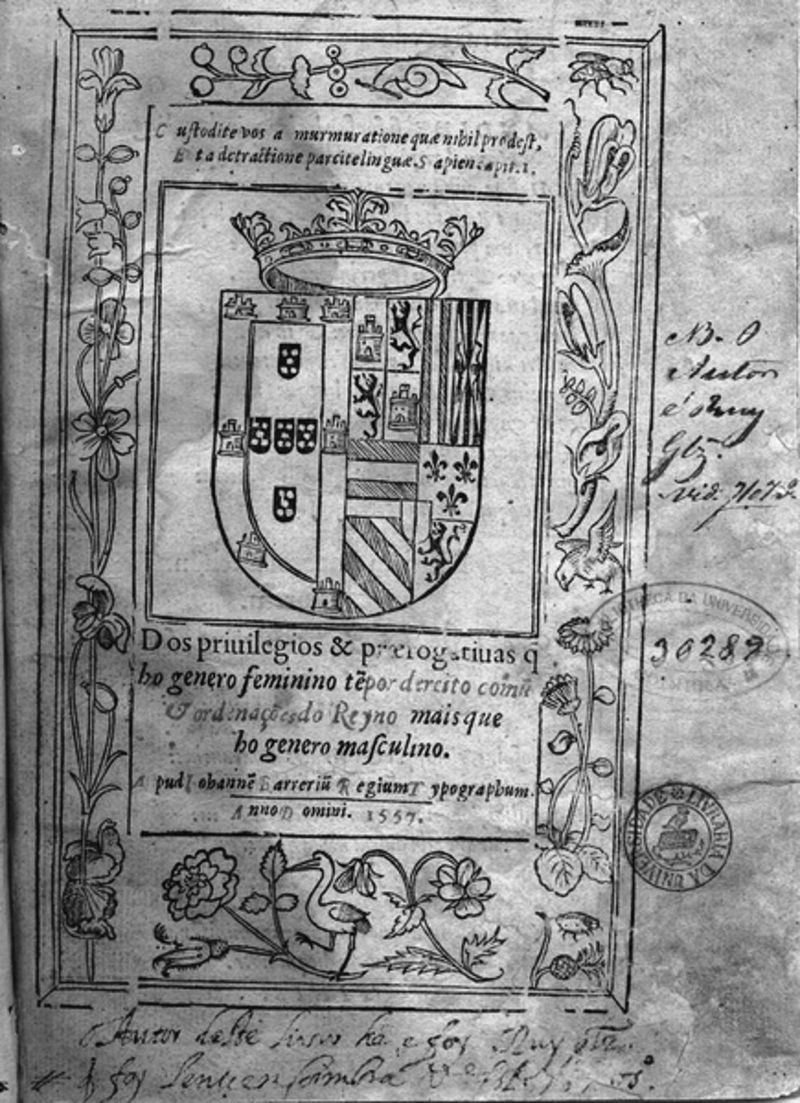 Custodite vos a murmuratione quæ nihil prodest,
Et a detractione parcite linguæ Sapien. capit. 1.
Dos priuilegios & prærogatiuas q̃
ho genero feminino tẽ por dereito comũ
& ordenações do Reyno mais que
ho genero masculino.
Apud Iohannẽ Barreriũ Regium Typographum.
Anno Domini. 1557.
N. B. O
Autor
é Ruy
Glz.
vid. Not.
BIBLIOTHECA DA UNIVERSIDADE
30289
LIVRARIA DA UNIVERSIDADE
O Autor deste livro he e foy Ruy
foy Lente em Coimbra